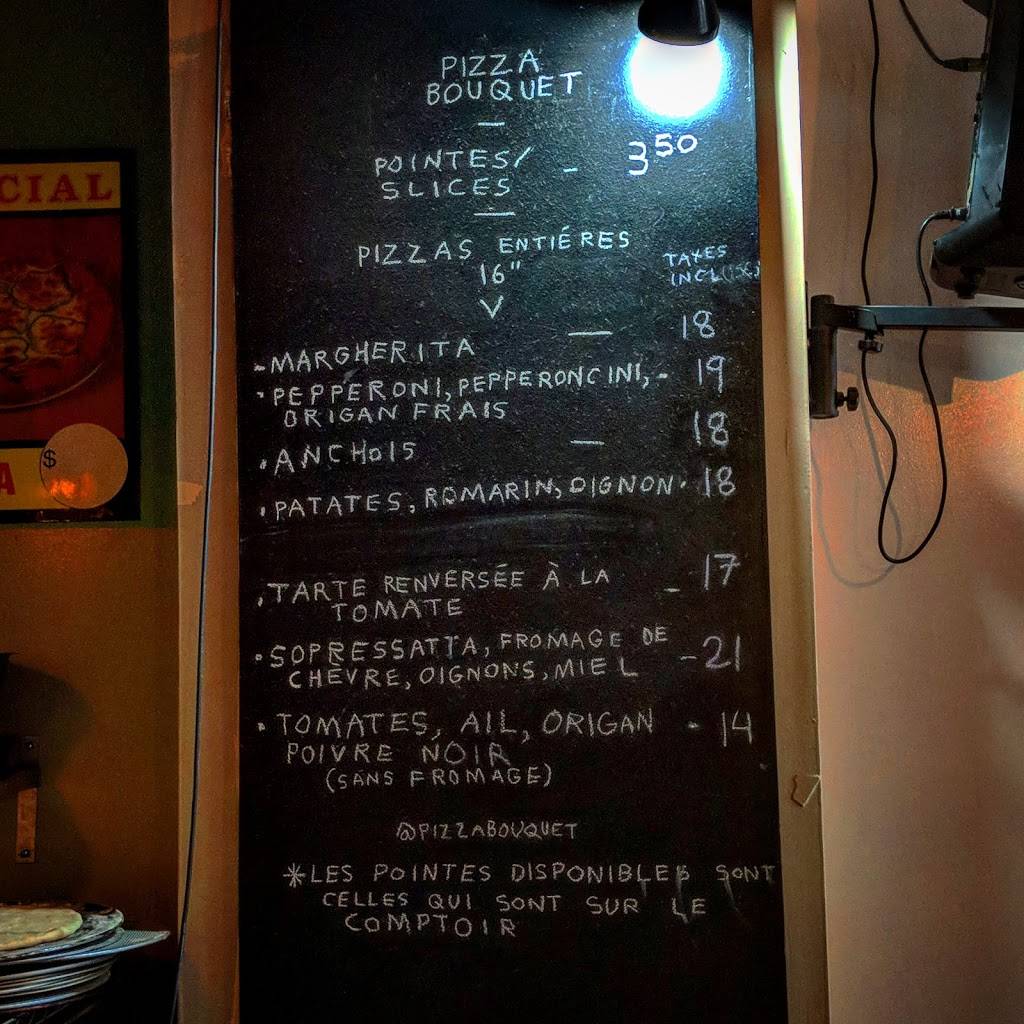 PIZZA
BOUQUET
—
POINTES/ - 3 50
SLICES
—
PIZZAS ENTIÉRES
16"
TAXES
INCLUSES
- MARGHERITA — 18
· PEPPERONI, PEPPERONCINI, - 19
ORIGAN FRAIS
· ANCHOIS — 18
· PATATES, ROMARIN, OIGNON · 18
· TARTE RENVERSÉE À LA - 17
TOMATE
· SOPRESSATTA, FROMAGE DE - 21
CHÈVRE, OIGNONS, MIEL
· TOMATES, AIL, ORIGAN - 14
POIVRE NOIR
(SANS FROMAGE)
@PIZZABOUQUET
*LES POINTES DISPONIBLES SONT
CELLES QUI SONT SUR LE
COMPTOIR
CIAL
A
$